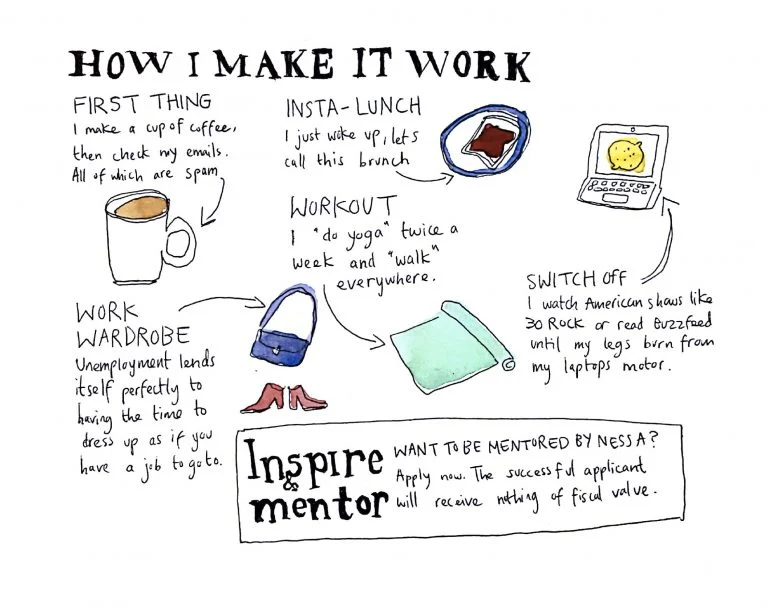 HOW I MAKE IT WORK
FIRST THING
I make a cup of coffee,
then check my emails.
All of which are spam
INSTA-LUNCH
I just woke up, let's
call this brunch
WORKOUT
I "do yoga" twice a
week and "walk"
everywhere.
SWITCH OFF
I watch American shows like
30 ROCK or read Buzzfeed
until my legs burn from
my laptops motor.
WORK
WARDROBE
Unemployment lends
itself perfectly to
having the time to
dress up as if you
have a job to go to.
Inspire
&
mentor
WANT TO BE MENTORED BY NESSA?
Apply now. The successful applicant
will receive nothing of fiscal value.